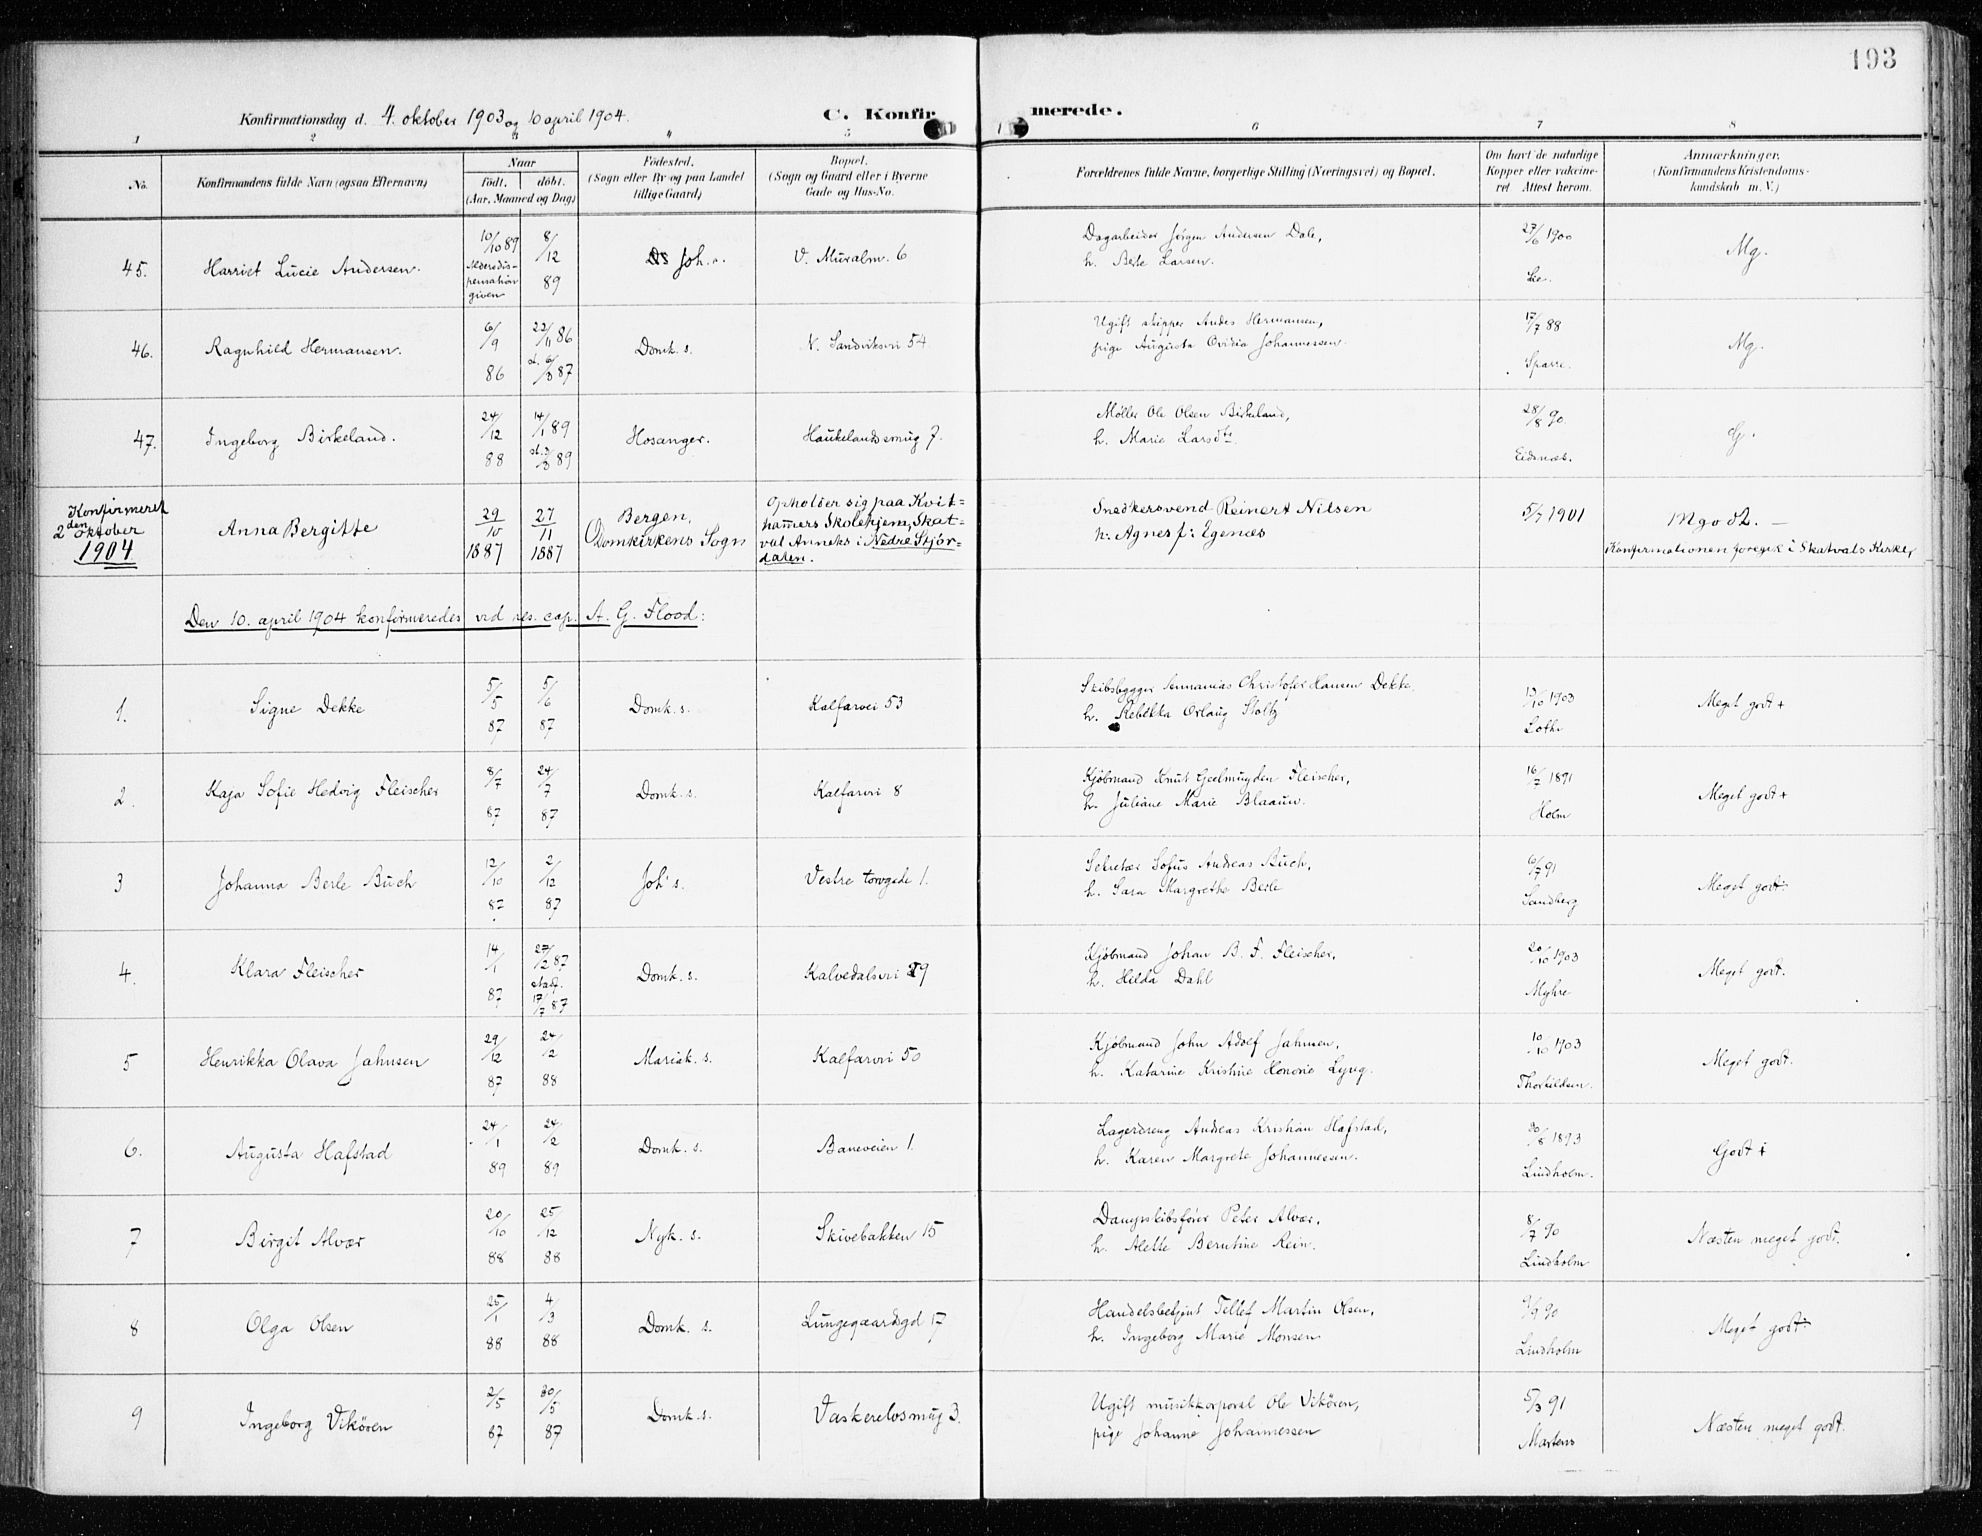 193
Konfirmationsdag d. 4. oktober 1903 og 10 april 1904.
C. Konfirmerede.
1 2 3 4 5 6 7 8
No.
Konfirmandens fulde Navn (ogsaa Efternavn)
Naar
födt. döbt.
(Aar, Maaned og Dag)
Födested.
(Sogn eller By og paa Landet
tillige Gaard)
Bopæl.
(Sogn og Gaard eller i Byerne
Gade og Hus-No.
Forældrenes fulde Navne, borgerlige Stilling (Næringsvei) og Bopæl.
Om havt de naturlige
Kopper eller vakcine-
ret Attest herom.
Anmærkninger.
(Konfirmandens Kristendoms-
kundskab m. V.)
45. Harriet Lucie Andersen.
10/10 89
Alderdis-
pensation
given
8/12
89
Joh. s.
V. Muralm. 6
Dagarbeider Jørgen Andersen Dale,
h. Berte Larsen.
27/6 1900
Lie.
Mg.
46. Ragnhild Hermansen.
6/9
86
22/11 86
st. 6/3 87
Domk. s.
N. Sandviksvei 54
Ugift skipper Andes Hermansen,
pige Augusta Ovidia Johannessen.
17/7 88
Sparre.
Mg.
47. Ingeborg Birkeland.
24/12
88
14/1 89
st. 3/3 89
Hosanger.
Haukelandsmug 7.
Møller Ole Olsen Birkeland,
h. Marie Larsdtr.
28/8 90.
Eidsnæs.
G.
Konfirmeret
2den oktober
1904
Anna Bergitte
29/10
1887
27/11
1887
Bergen,
Domkirkens Sogn
Opholder sig paa Kvit=
hamers Skolehjem, Skat=
val Anneks i Nedre Stjør-
dalen.
Snedkersvend Reinert Nilsen
h. Agnes f: Egenæs
5/7 1901
Mgodt. —
Konfirmationen foregik i Skatvals Kirke,
Den 10. april 1904 konfirmeredes ved res. cap. A. G. Flood:
1. Signe Dekke
5/5
87
5/6
87
Domk. s.
Kalfarvei 53
Skibsbygger Annanias Christofer Hansen Dekke,
h. Rebekka Orlaug Stoltz
13/10 1903
Lothe
Meget godt +
2. Kaja Sofie Hedvig Fleischer
8/7
87
24/7
87
Domk. s.
Kalfarvei 8
Kjöbmand Knut Geelmuyden Fleischer,
h. Juliane Marie Blaauw.
16/7 1891
Holm
Meget godt +
3 Johanna Berle Buch
12/10
87
2/12
87
Joh' s.
Vestre torvgade 1.
Sekretær Sofus Andreas Buch,
h. Sara Margrethe Berle
6/7 91
Sandberg
Meget godt
4. Klara Fleischer
14/1
87
27/2 87
stadf.
17/7 87
Domk. s.
Kalvedalsvei 9
Kjöbmand Johan B. F. Fleischer,
h. Hilda Dahl
20/10 1903
Myhre
Meget godt.
5 Henrikka Olava Jahnsen
29/12
87
24/2
88
Mariak. s.
Kalfarvei 50
Kjöbmand John Adolf Jahnsen,
h. Katarine Kristine Honorie Lyng.
10/10 1903
Thorkildsen.
Meget godt.
6. Augusta Hafstad
24/1
89
24/2
89
Domk. s.
Baneveien 1.
Lagerdreng Andreas Kristian Hafstad,
h. Karen Margrete Johannessen.
30/8 1893
Lindholm.
Godt +
7 Birgit Alvær
20/10
88
25/12
88
Nyk. s.
Skivebakken 15
Dampskibsfører Peter Alvær,
h. Alette Berntine Rein.
8/7 90
Lindholm
Næsten meget godt.
8 Olga Olsen
25/1
88
4/3
88
Domk. s.
Lungegaardsgd 17
Handelsbetjent Tellef Martin Olsen,
h. Ingeborg Marie Monsen
9/9 90
Lindholm
Meget godt
9 Ingeborg Vikören
2/5
87
30/5
87
Domk. s.
Vaskerelvsmug 3.
Ugift musikkorporal Ole Vikören,
pige Johanne Johannessen
5/3 91
Martens
Næsten meget godt.